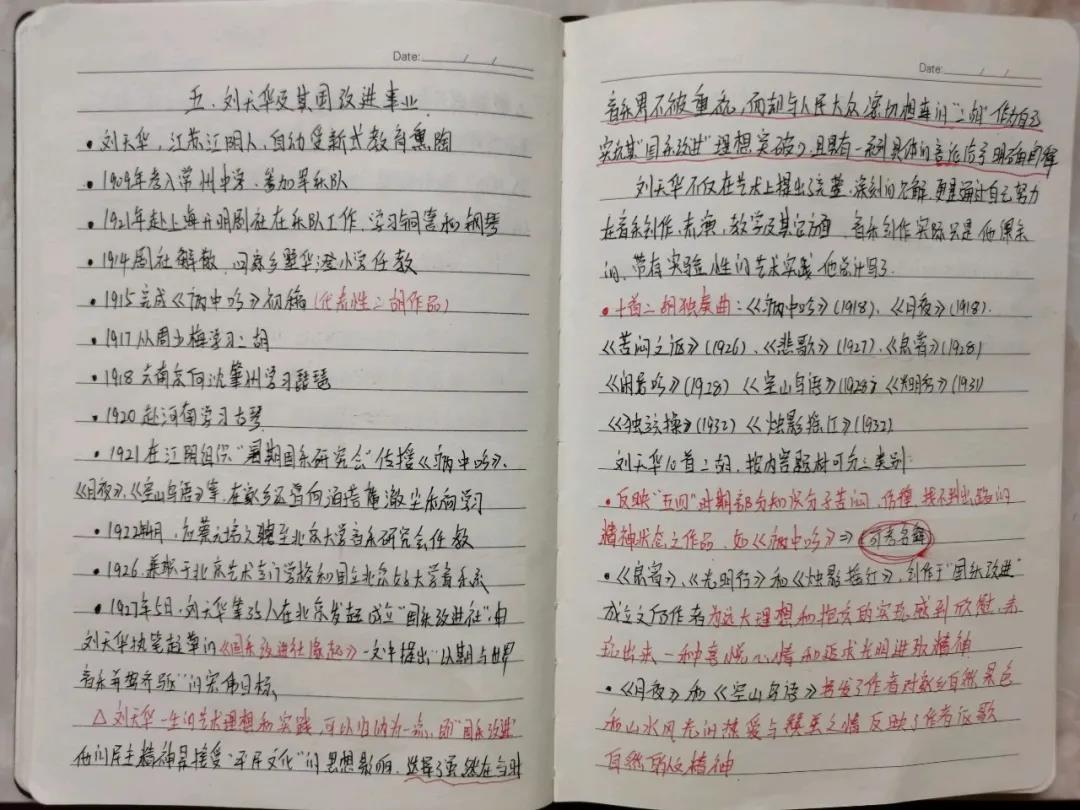 Date: / /
五、刘天华及其国改进事业
• 刘天华，江苏江阴人，自动受新式教育熏陶
• 1909年考入常州中学，参加军乐队
• 1921年赴上海开明剧社在乐队工作，学习铜管和钢琴
• 1914剧社解散，回家乡华澄小学任教
• 1915完成《病中吟》初稿(代表性二胡作品)
• 1917从周少梅学习二胡
• 1918去南京向沈肇州学习琵琶
• 1920赴河南学习古琴
• 1921在江阴组织“暑期国乐研究会”传播《病中吟》、
《月夜》、《空山鸟语》等，在家乡还曾向涌塔庵澈尘和尚学习
• 1922年月，应蔡元培之聘至北京大学音乐研究会任教
• 1926.兼职于北京艺术专门学校和国立北京女子大学音乐系
• 1927年5月，刘天华等35人在北京发起成立“国乐改进社”由
刘天华执笔起草的《国乐改进社缘起》一文中提出“以期与世界
音乐并驾齐驱”的宏伟目标、
△ 刘天华一生的艺术理想和实践，可以归纳为一点，即“国乐改进”
他的民主精神是接受“平民文化”的思想影响，选择了虽然在当时
Date: / /
音乐界不被重视，而却与人民大众深切相连的“二胡”作为自己
实现其“国乐改进”理想突破口，且具有一系列具体的言论信予明确
刘天华不仅在艺术上提出了完整、深刻的见解，更是通过自己努力
在音乐创作、表演、教学及其它方面，音乐创作实际只是他课余
的、带有实验性的艺术实践，他总计写了
• 十首二胡独奏曲：《病中吟》(1918)、《月夜》(1918).
《苦闷之讴》(1926)、《悲歌》(1927)、《良宵》(1928)
《闲居吟》(1928) 《空山鸟语》(1928) 《光明行》(1931)
《独弦操》(1932) 《烛影摇红》(1932)
刘天华10首二胡，按内容题材可分三类别：
• 反映“五四”时期部分知识分子苦闷、彷徨、找不到出路的
精神状态之作品，如《病中吟》⇒ 可考名解
• 《良宵》、《光明行》和《烛影摇红》，创作于“国乐改进”
成立之后作者为远大理想和抱负的实现感到欣慰，表
现出来一种喜悦心情和追求光明进取精神
• 《月夜》和《空山鸟语》抒发了作者对家乡自然景色
和山水风光的热爱与赞美之情反映了作者讴歌
自然的精神